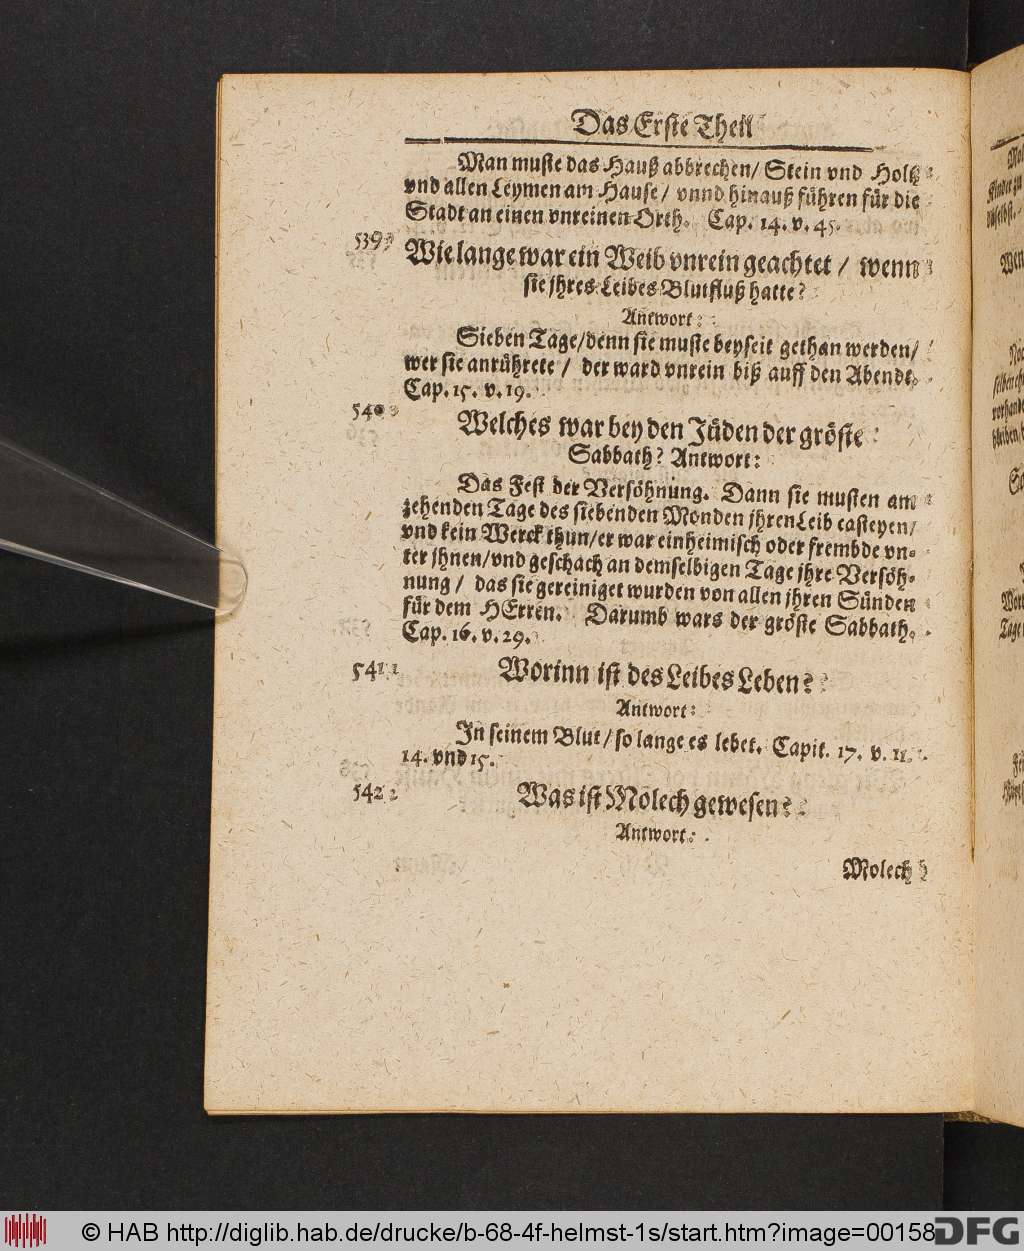 Das Erste Theil
Man muste das Hauß abbrechen/ Stein vnd Holtz
vnd allen Leymen am Hause/ vnnd hinauß führen für die
Stadt an einen vnreinen Orth. Cap. 14. v. 45.
539. Wie lange war ein Weib vnrein geachtet/ wenn
sie jhres Leibes Blutfluß hatte?
Antwort:
Sieben Tage/denn sie muste beyseit gethan werden/
wer sie anrührete/ der ward vnrein biß auff den Abendt.
Cap. 15. v. 19.
540. Welches war bey den Jüden der gröste
Sabbath? Antwort:
Das Fest der Versöhnung. Dann sie musten am
zehenden Tage des siebenden Monden jhren Leib casteyen/
vnd kein Werck thun/er war einheimisch oder frembde vn-
ter jhnen/vnd geschach an demselbigen Tage jhre Versöh-
nung/ das sie gereiniget wurden von allen jhren Sünden
für dem HErren. Darumb wars der gröste Sabbath.
Cap. 16. v. 29.
541. Worinn ist des Leibes Leben?
Antwort:
In seinem Blut/so lange es lebet. Capit. 17. v. 11.
14. vnd 15.
542. Was ist Molech gewesen?
Antwort:
Molech
© HAB http://diglib.hab.de/drucke/b-68-4f-helmst-1s/start.htm?image=00158
DFG